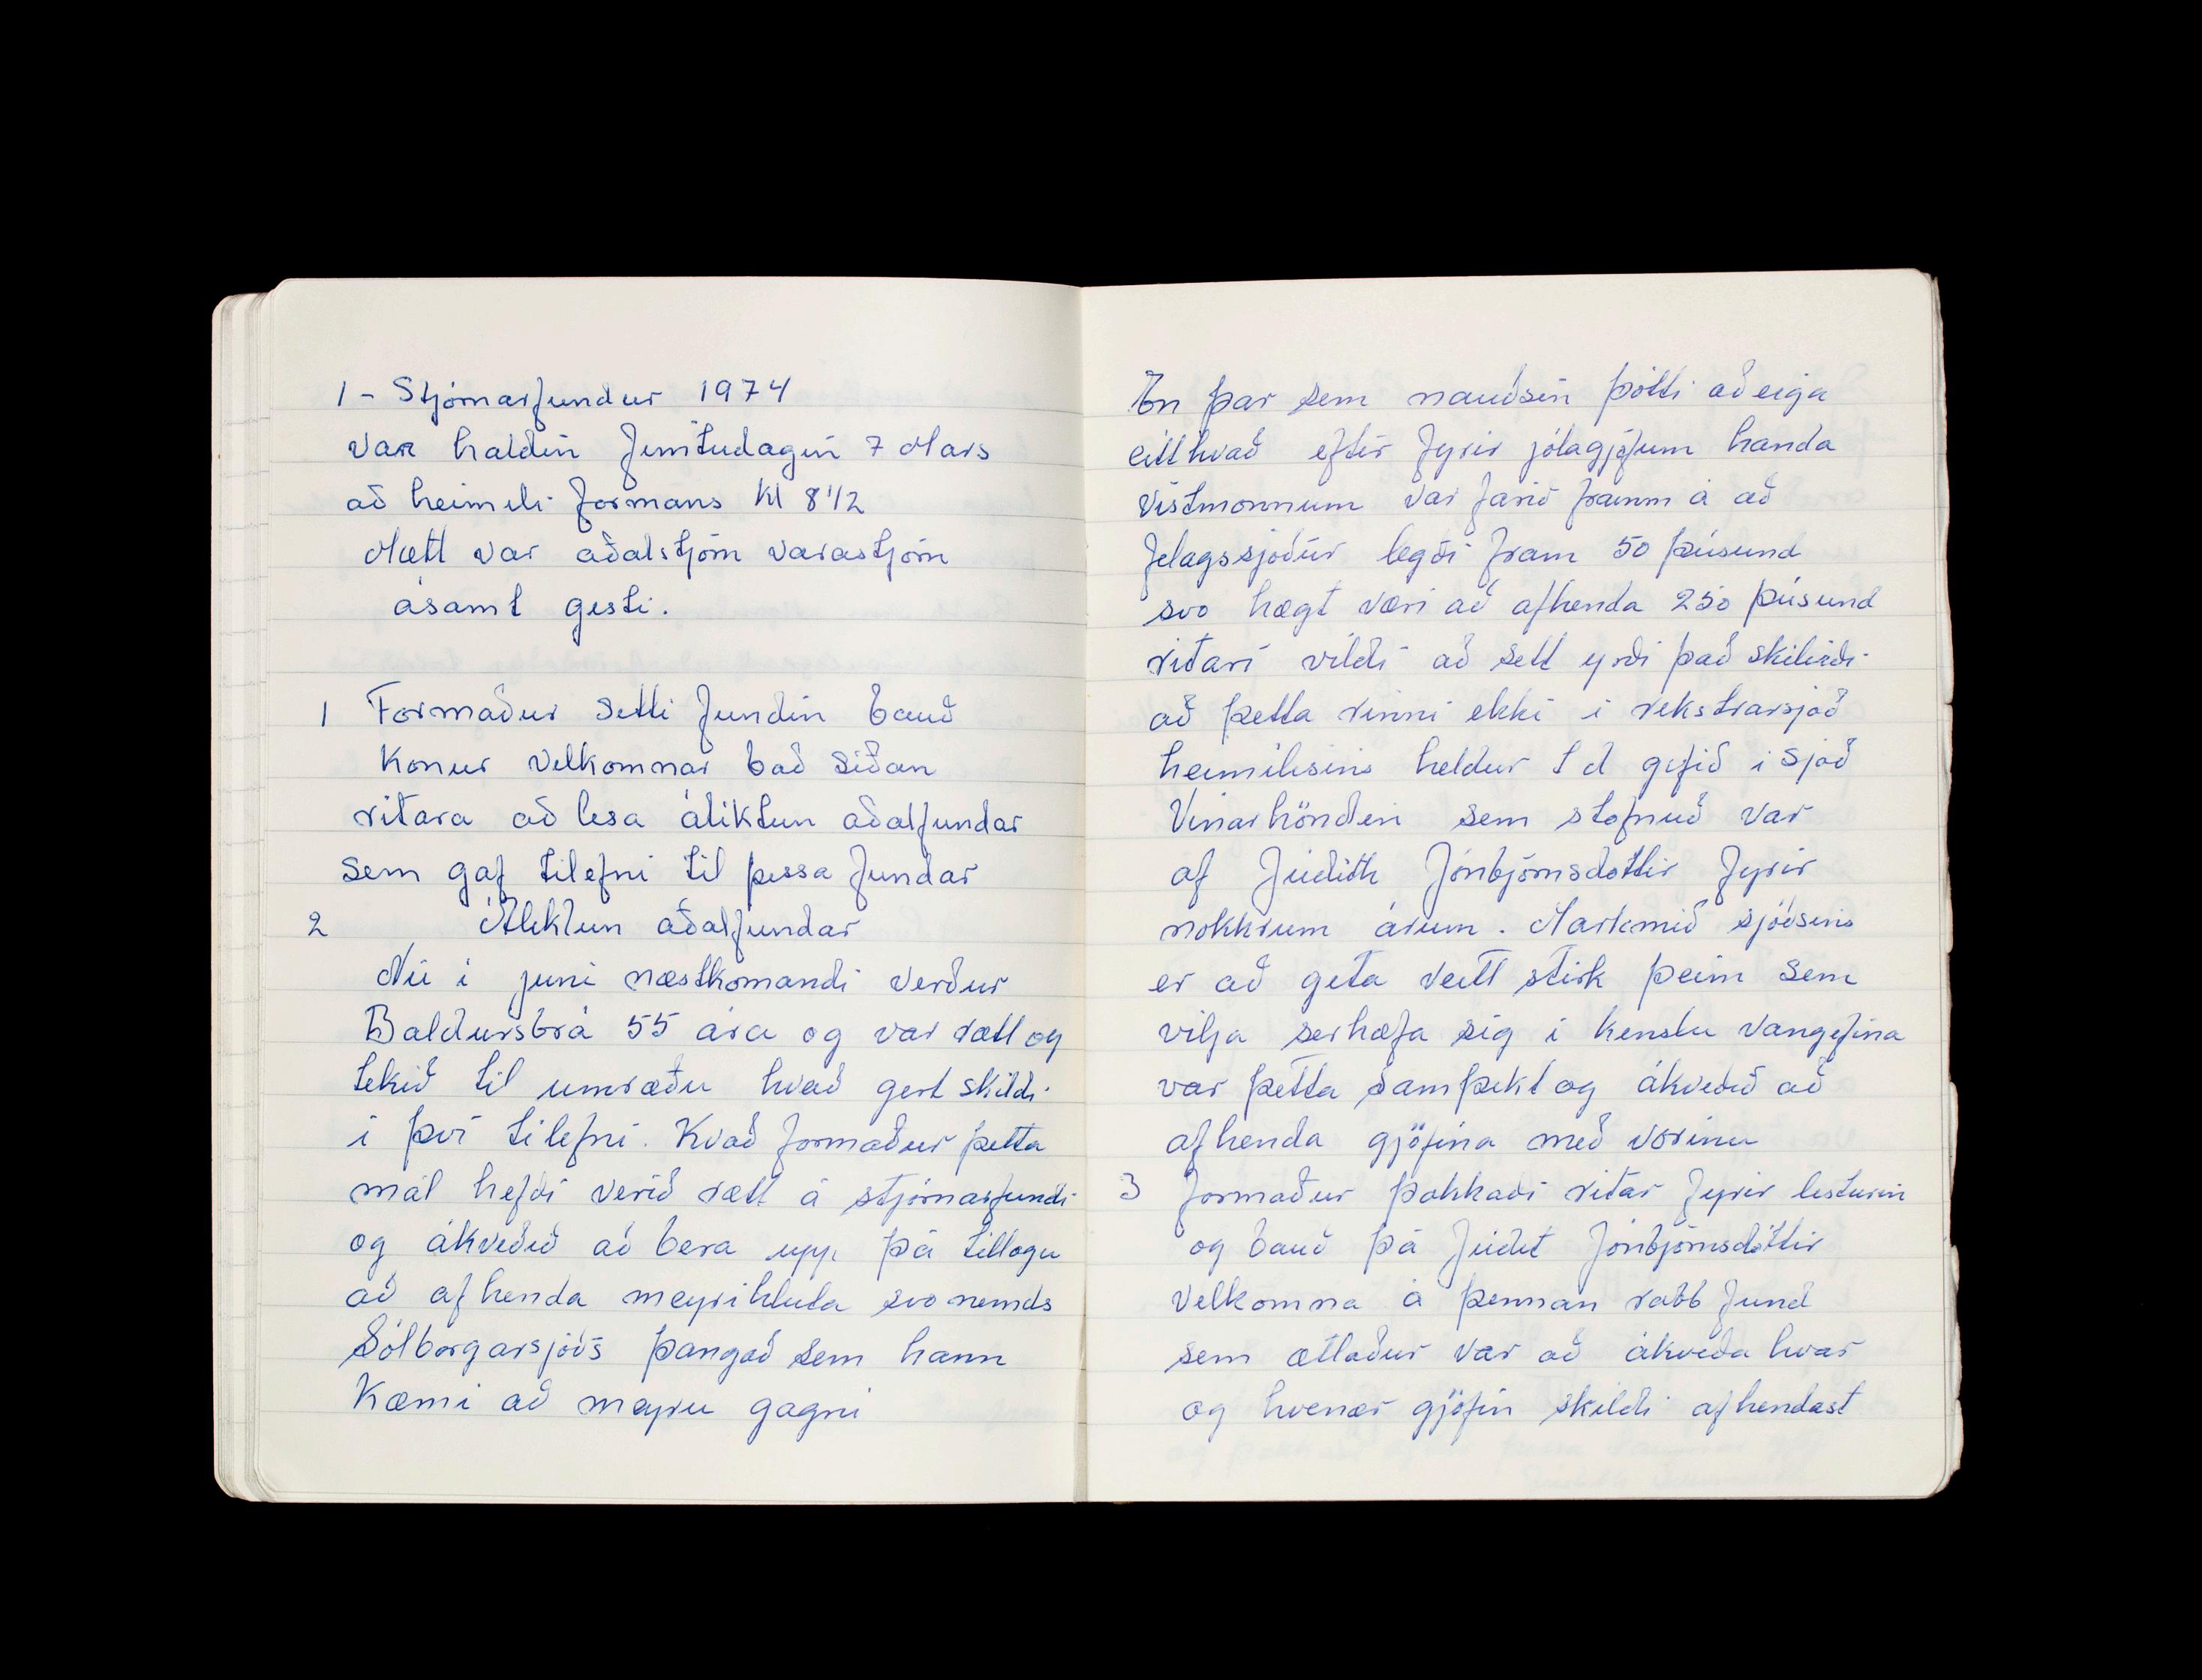 1 - Stjórnarfundur 1974
var haldin fimtudagin 7 Mars
að heimili formans Kl 8 1/2
Mætt var aðalstjórn varastjórn
ásamt gesti.
1 Formaður setti fundin bauð
konur velkomnar bað síðan
ritara að lesa áliktun aðalfundar
sem gaf tilefni til þessa fundar
2 Áliktun aðalfundar
Nú i juni næstkomandi verður
Baldursbrá 55 ára og var rætt og
tekið til umræðu hvað gert skildi
i því tilefni. Kvað formaður þetta
mál hefði verið rætt á stjórnarfundi
og ákveðið að bera upp þá tillogu
að afhenda meyrihluta svo nemds
Sólborgarsjóðs þangað sem hann
Kæmi að meyru gagni
En þar sem nauðsin þótti að eiga
eitthvað eftir fyrir jólagjöfum handa
vistmonnum var farið framm á að
felagssjoður legði fram 50 þúsund
svo hægt væri að afhenda 250 þúsund
ritari vildi að sett yrði það skilirði
að þetta rinni ekki i rekstrarsjoð
heimilisins heldur t d gefið i sjoð
Vinarhöndin sem stofnuð var
af Júdith Jónbjörnsdottir fyrir
nokkrum árum. Markmið sjóðsins
er að geta veitt stirk þeim sem
vilja serhæfa sig i kenslu vangefina
var þetta samþikt og ákveðið að
afhenda gjöfina með vorinu
3 formaður þakkaði ritar fyrir lesturin
og bauð þá Júdit Jónbjörnsdóttir
velkomna á þennan rabb fund
sem ætlaður var að ákveða hvar
og hvenær gjöfin skildi afhendast